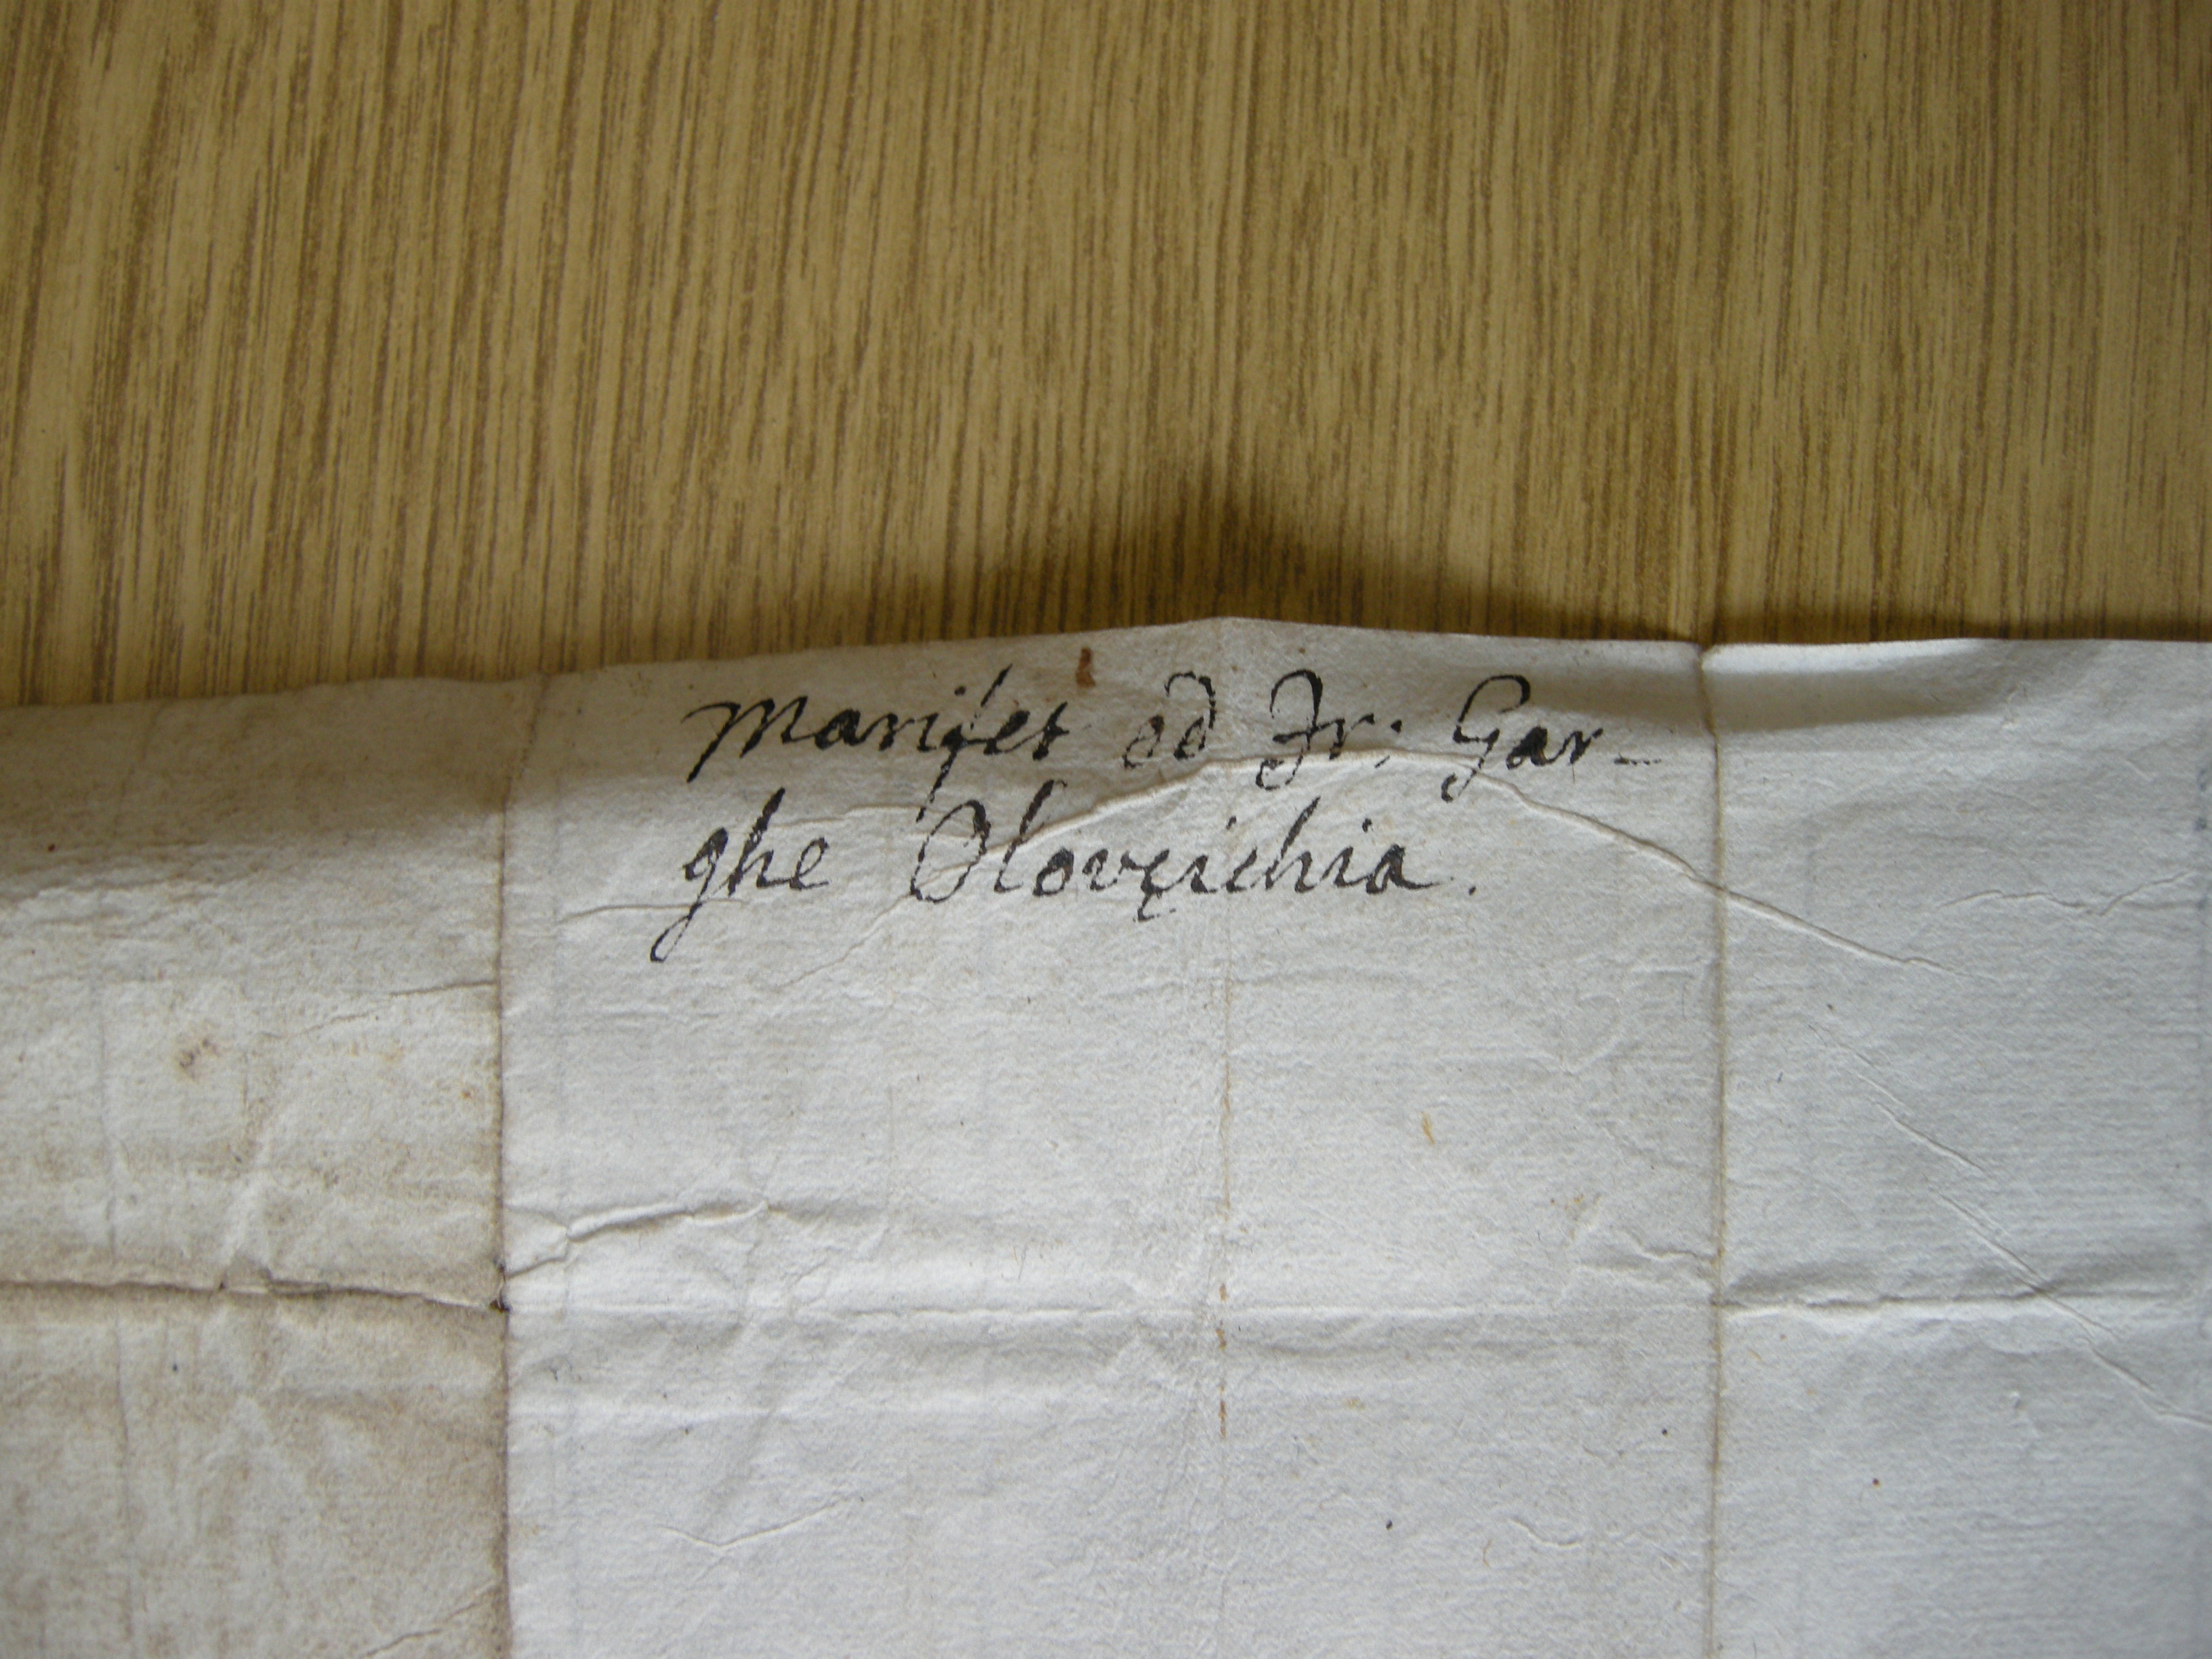 Marifet od Fr: Gar-
ghe Olovçichia.